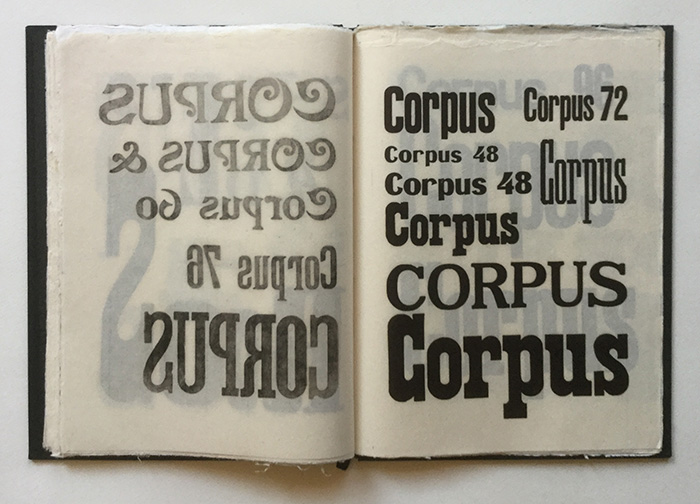 CORPUS
CORPUS &
Corpus 60
Corpus 76
CORPUS
Corpus
Corpus 72
Corpus 48
Corpus 48
Corpus
Corpus
CORPUS
Corpus